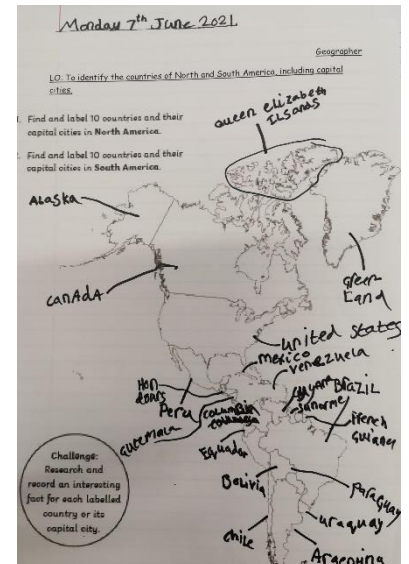 Monday 7th June 2021
Geographer
LO: To identify the countries of North and South America, including capital
cities.
1. Find and label 10 countries and their
capital cities in North America.
Find and label 10 countries and their
capital cities in South America.
Queen elizabeth
ILsands
ALaska
canAdA
green
Land
united States
mexico
venezuela
Hon
dours
Peru
Gutemala
columbia
Guyana
BRAZIL
suname
french
guiana
Equador
Bolivia
Paraguay
uraguay
chile
Argentina
Challenge:
Research and
record an interesting
fact for each labelled
country or its
capital city.